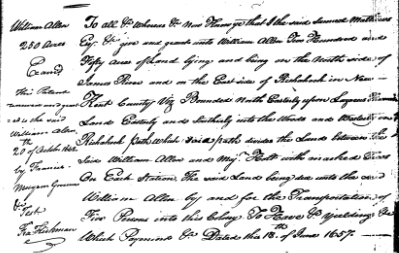 William Allen
250 Acres
Exam'd
This Patent
renewed and granted
to the said
William Allen
20 of October 1662
by Francis
Morryson Governor
&c
Test
Fra Kirkman
To all &c Whereas &c Now Know ye that I the said Samuel Mathews
Esqr &c give and grant unto William Allen Two Hundred and
Fifty Acres of Land Lying and being on the North side of
James River and on the East side of Rickahock in New
Kent County Viz Bounded North Easterly upon
Land Easterly and Southerly into the Woods and Westerly on
Rickahock path which said path divides the Land between the
Said William Allen and Maj. Holt with marked Trees
On Each Station. The said Land being due unto the said
William Allen by and for the Transportation of
Five Persons into this Colony To Have &c Yielding &c
Which Payment &c Dated this 18th of June 1657